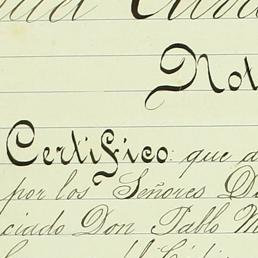 Not
Certifico: que a
por los Señores D
ciado Don Pablo M